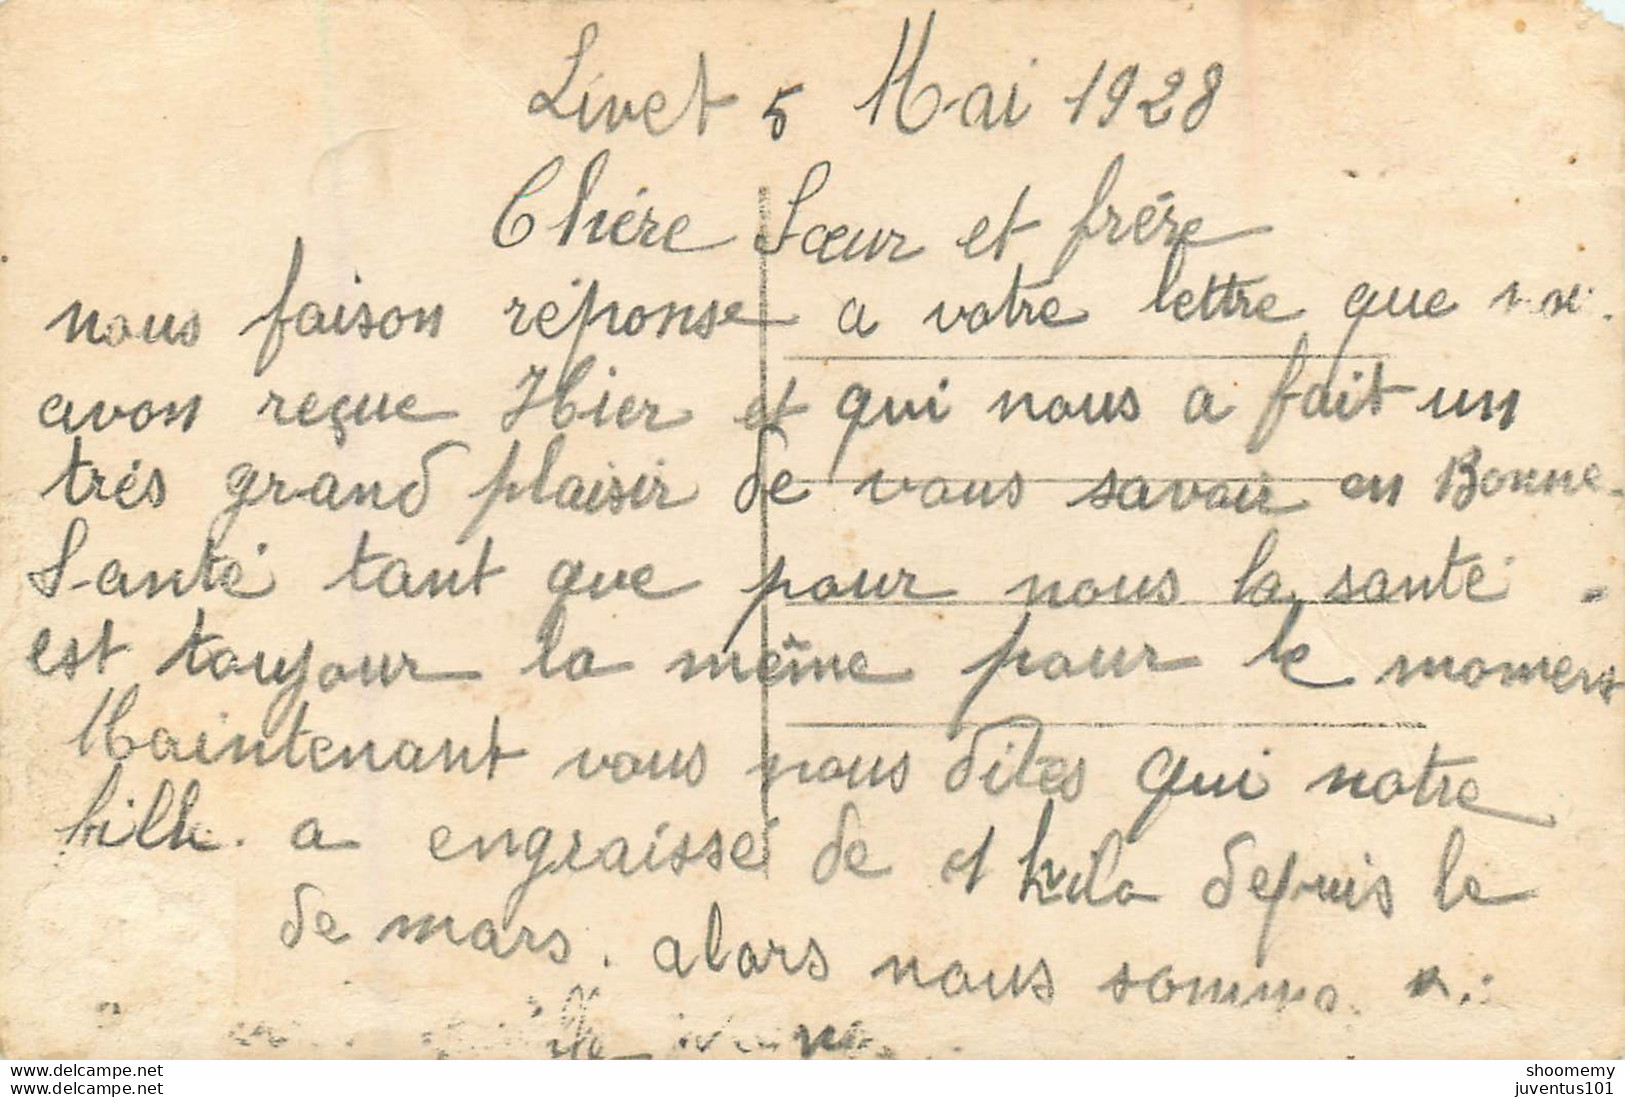 Livet 5 Mai 1928
Chére Sœur et frére
nous faison réponse a votre lettre que
avon reçue Hier et qui nous a fait un
trés grand plaisir de vous savoir en Bonne
Santé tant que pour nous la santé
est toujour la même pour le moment
Maintenant vous nous dites qui notre
fille a engraissé de 1 kilo depuis le
de mars. alors nous somme
www.delcampe.net shoomemy
www.delcampe.net juventus101